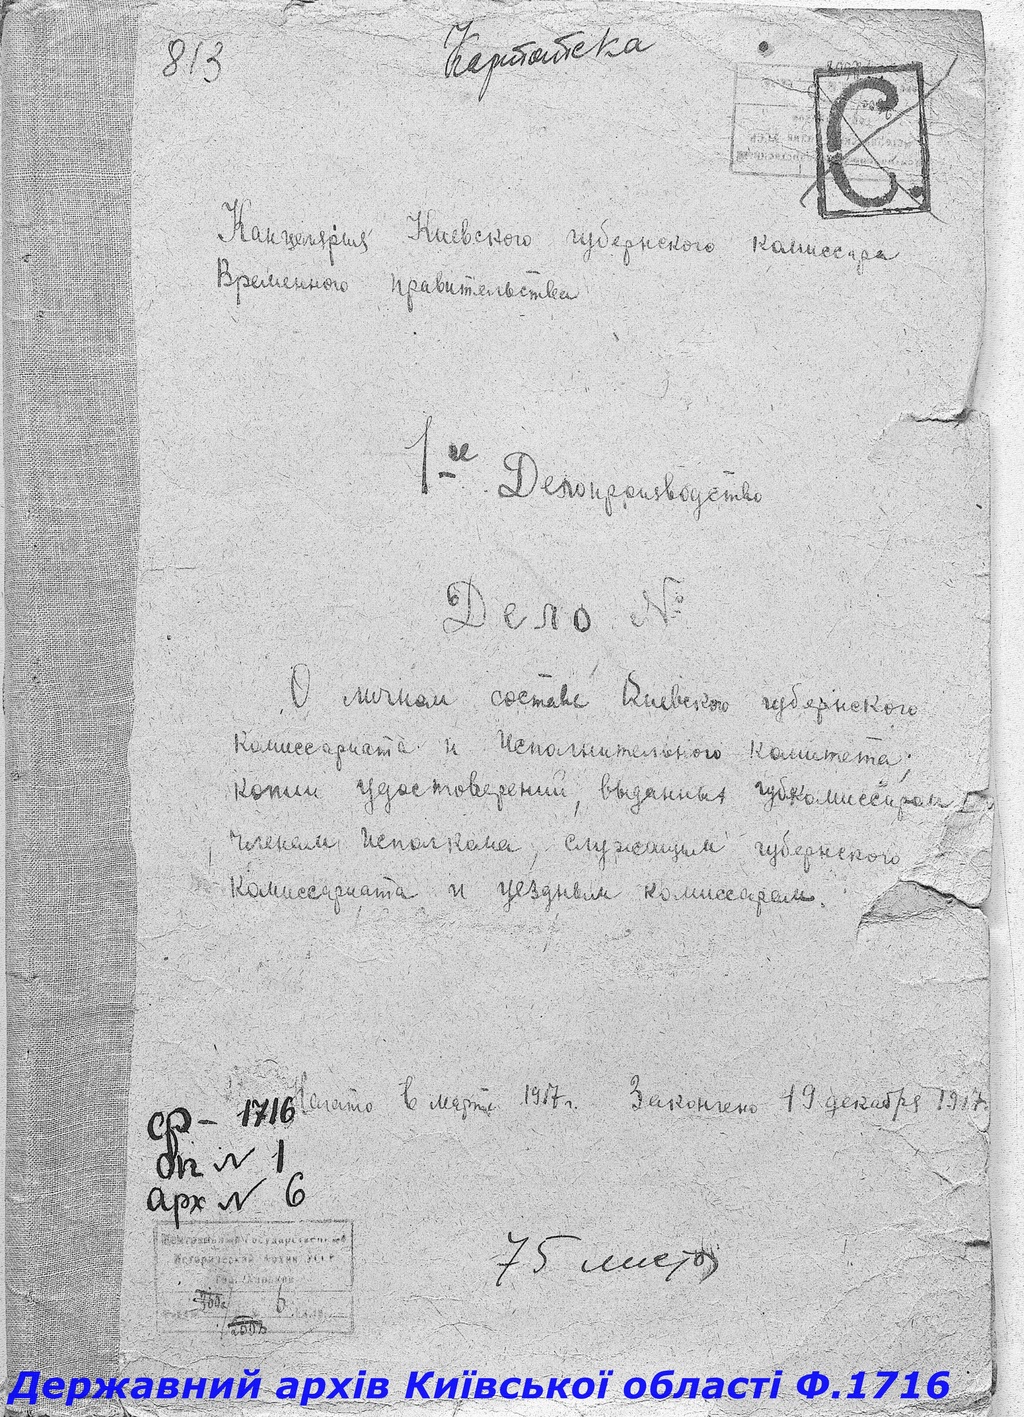 813
Картотека
С.
Канцелярия Киевского губернского комиссара
Временного правительства
1-ое Делопроизводство
Дело №
О личном составе Киевского губернского
комиссариата и Исполнительного комитета,
копии удостоверений, выданных губкомиссаром
членам Исполкома, служащим губернского
комиссариата и уездным комиссарам.
Начато в марте 1917 г. Закончено 19 декабря 1917.
ф- 1716
оп N 1
арх N 6
75 листов
Центральный Государственный
Исторический Архив УССР
6
Державний архів Київської області Ф.1716